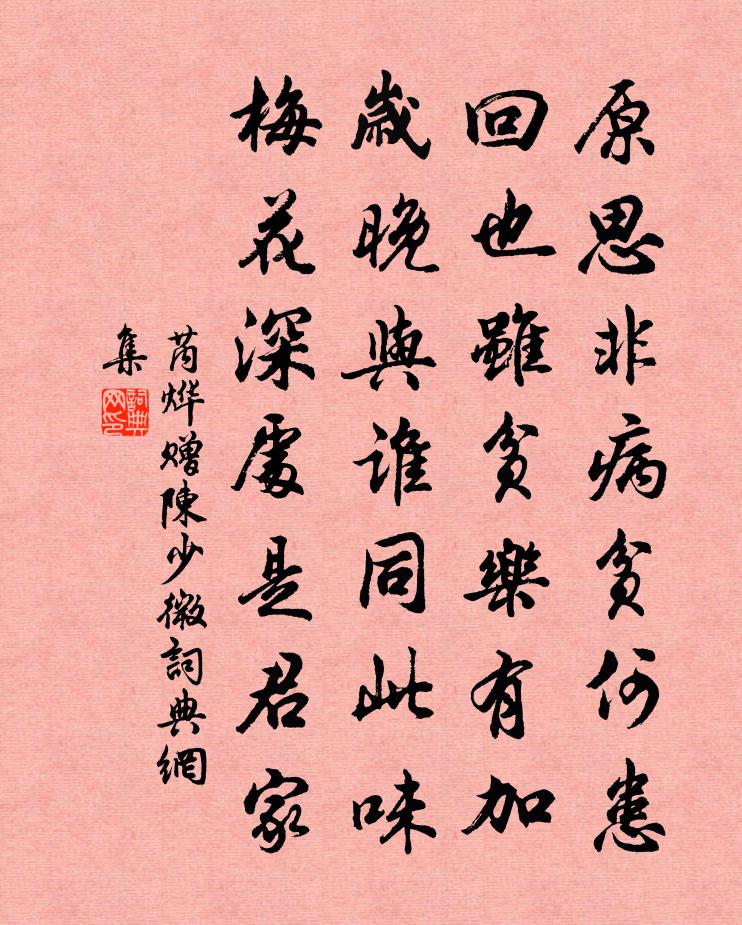 原思非病貧何患
回也雖貧樂有加
歲晚與誰同此味
梅花深處是君家
芮燁贈陳少微詞典網
集
詞典
网印